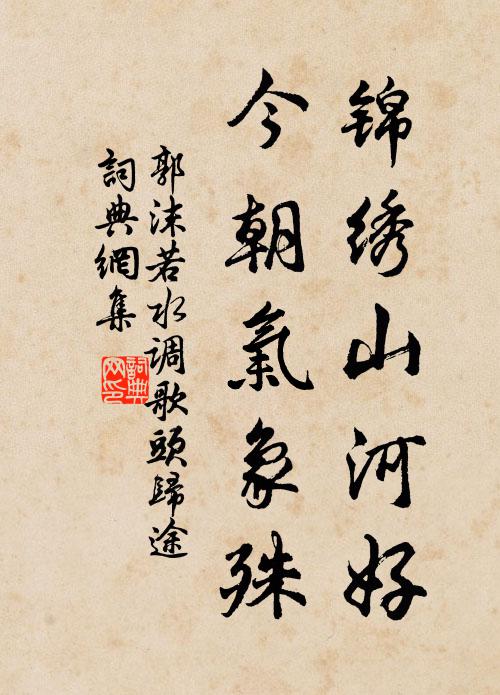 锦绣山河好
今朝氣象殊
郭沫若水调歌頭歸途
詞典網集
詞典网印